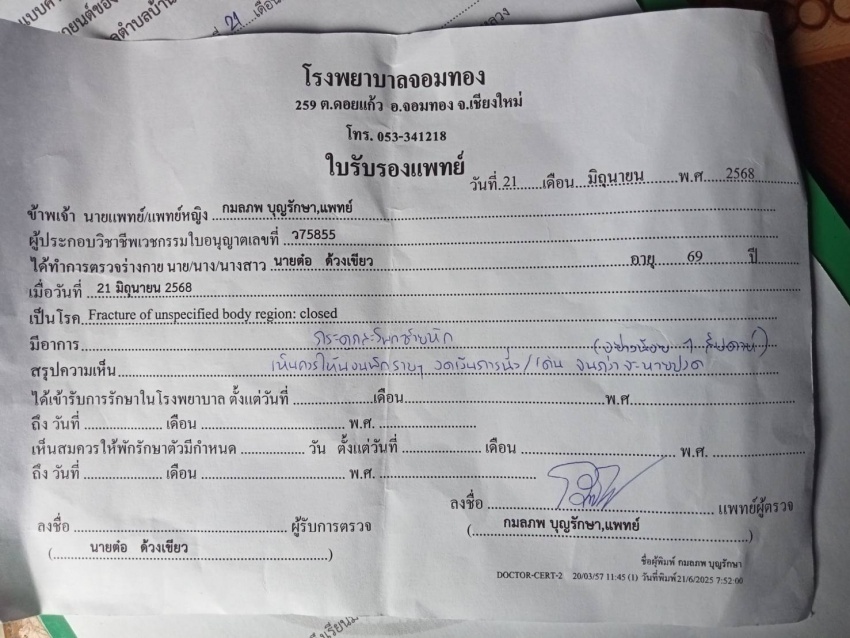 แบบคำ
ายยนต์ของ
ลตำบลบ้าน
ที่ 21 เดือน
ลวง
โรงพยาบาลจอมทอง
259 ต.ดอยแก้ว อ.จอมทอง จ.เชียงใหม่
โทร. 053-341218
ใบรับรองแพทย์
วันที่ 21 เดือน มิถุนายน พ.ศ 2568
ข้าพเจ้า นายแพทย์/แพทย์หญิง กมลภพ บุญรักษา,แพทย์
ผู้ประกอบวิชาชีพเวชกรรมใบอนุญาตเลขที่ ว75855
ได้ทำการตรวจร่างกาย นาย/นาง/นางสาว นายต๋อ ด้วงเขียว อายุ 69 ปี
เมื่อวันที่ 21 มิถุนายน 2568
เป็นโรค Fracture of unspecified body region: closed
มีอาการ กระดูกสะโพกซ้ายหัก (อย่างน้อย 1 สัปดาห์)
สรุปความเห็น เห็นควรให้นอนพักราบๆ งดเว้นการนั่ง/เดิน จนกว่าจะหายปวด
ได้เข้ารับการรักษาในโรงพยาบาล ตั้งแต่วันที่ เดือน พ.ศ.
ถึง วันที่ เดือน พ.ศ.
เห็นสมควรให้พักรักษาตัวมีกำหนด วัน ตั้งแต่วันที่ เดือน พ.ศ.
ถึง วันที่ เดือน พ.ศ.
ลงชื่อ แพทย์ผู้ตรวจ
(กมลภพ บุญรักษา,แพทย์)
ลงชื่อ ผู้รับการตรวจ
(นายต๋อ ด้วงเขียว)
ชื่อผู้พิมพ์ กมลภพ บุญรักษา
DOCTOR-CERT-2 20/03/57 11:45 (1) วันที่พิมพ์21/6/2025 7:52:00